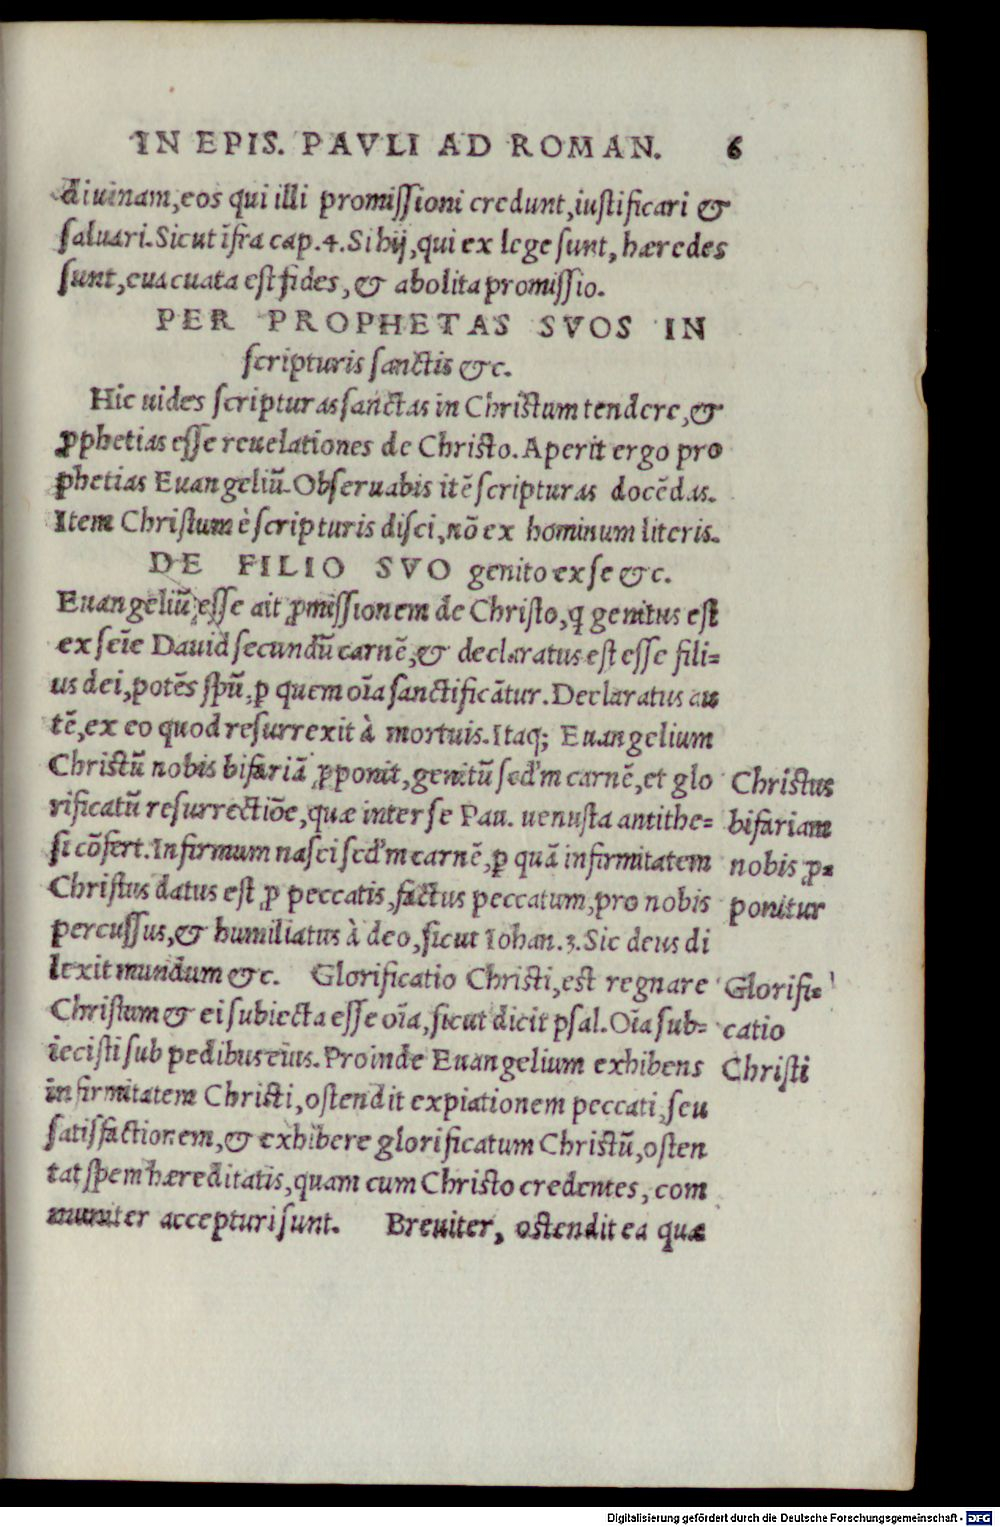 IN EPIS. PAVLI AD ROMAN. 6
diuinam,eos qui illi promiſſioni credunt,iuſtificari &
ſaluari.Sicut īfra cap.4.Si hij,qui ex lege ſunt,hæredes
ſunt,euacuata eſt fides,& abolita promiſſio.
PER PROPHETAS SVOS IN
ſcripturis ſanctis &c.
Hic uides ſcripturas ſanctas in Chriſtum tendere,&
ꝓphetias eſſe reuelationes de Chriſto.Aperit ergo pro
phetias Euangeliū.Obſeruabis itē ſcripturas docēdas.
Item Chriſtum è ſcripturis diſci,nō ex hominum literis.
DE FILIO SVO genito ex ſe &c.
Euangeliū eſſe ait ꝓmiſſionem de Chriſto,q genitus eſt
ex ſeīe Dauid ſecundū carnē,& declaratus eſt eſſe fili=
us dei,potēs ſpū,ꝑ quem oīa ſanctificātur.Declaratus au
tē,ex eo quod reſurrexit à mortuis.Itaq; Euangelium
Chriſtū nobis bifariā ꝓponit,genitū ſed'm carnē,et glo
rificatū reſurrectiōe,quæ inter ſe Pau. uenuſta antithe=
ſi cōfert.Infirmum naſci ſed'm carnē,ꝑ quā infirmitatem
Chriſtus datus eſt ꝓ peccatis,factus peccatum,pro nobis
percuſſus,& humiliatus à deo,ſicut Iohan.3.Sic deus di
lexit mundum &c. Glorificatio Chriſti,est regnare
Chriſtum & ei ſubiecta eſſe oīa,ſicut dicit pſal.Oīa ſub=
ieciſti ſub pedibus eius.Proinde Euangelium exhibens
infirmitatem Chriſti,oſtendit expiationem peccati,ſeu
ſatiſfactionem,& exhibere glorificatum Chriſtū,oſten
tat ſpem hæreditatis,quam cum Chriſto credentes,com
muniter accepturi ſunt. Breuiter, oſtendit ea quæ
Chriſtus
bifariam
nobis ꝓ=
ponitur
Glorifi=
catio
Chriſti
Digitalisierung gefördert durch die Deutsche Forschungsgemeinschaft - DFG